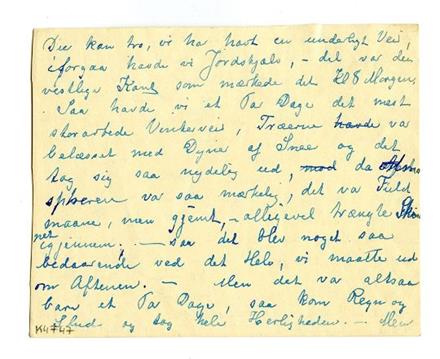 Du kan tro, vi har havt en underligt Vei,
iforgaa havde vi Jordskjælv, - det var den
vestlige Kant som mærkede det Kl 8 Morgen.
Saa havde vi et Par Dage det mest
storartede Vinterveir, Træerne havde var
belæsset med Dyner af Snee og det
tog sig saa nydelig ud, med da Atmos
sphæren var saa mærkelig, det var Fuld
maane, men gjemt, - alligevel trængte Skin
net igjennem, - saa det blev noget saa
bedaarende ved det Hele, vi maatte ud
om Aftenen. - Men det var altsaa
bare et Par Dage, saa kom Regn og
Slud og tog hele Herligheden. - Men
K4747